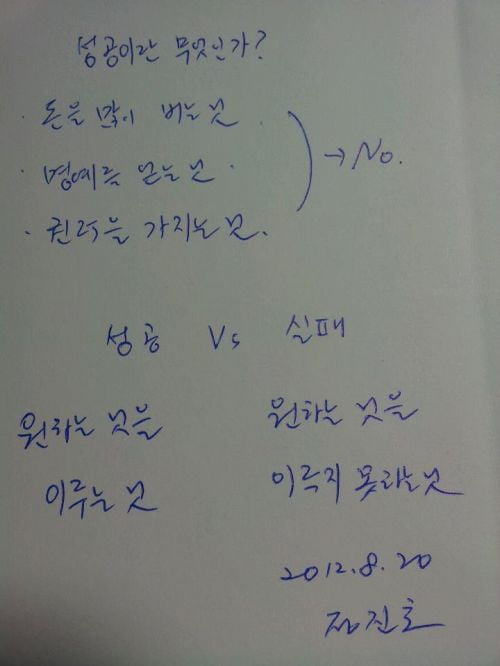 성공이란 무엇인가?
· 돈을 많이 버는 것.
· 명예를 얻는 것.
· 권력을 가지는 것.
→ No.
성공 Vs 실패
원하는 것을 원하는 것을
이루는 것 이루지 못하는 것
2012.8.20
정진호